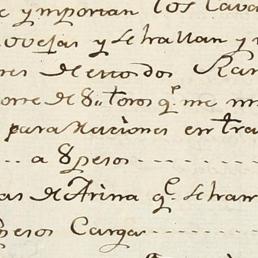 e ymportan los Cava
ovejas y se hallan y
res de essos dos Ran
orre de 8,, toros q.e me
para Raciones en tra
... a 8 pesos ..........
as de Arina q.e se han
pesos Carga ......